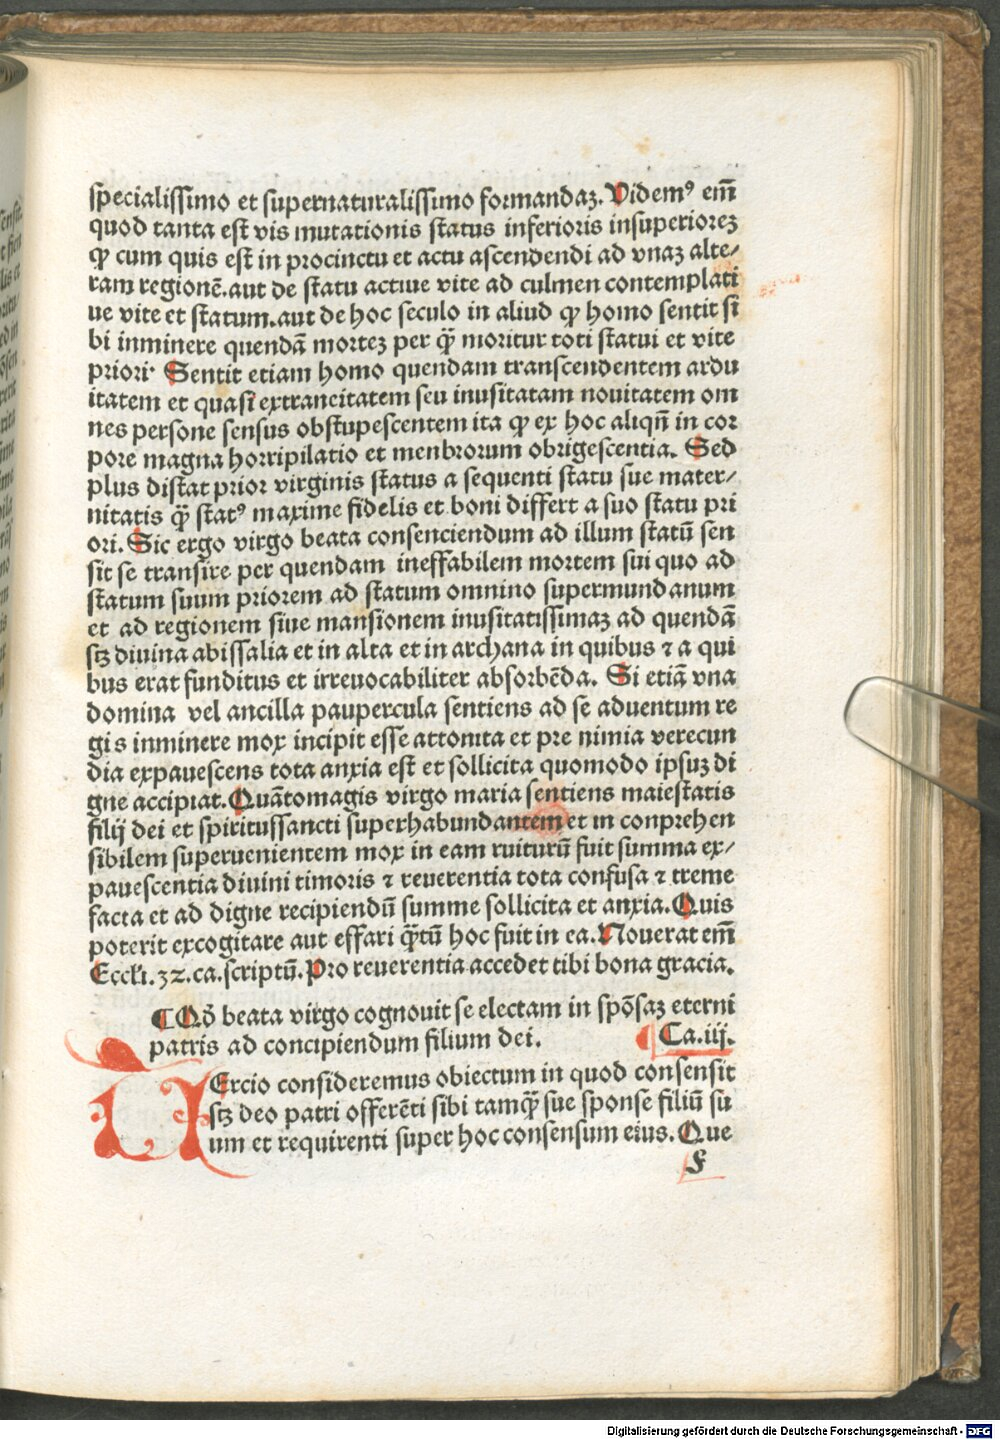 specialissimo et supernaturalissimo formandaꝫ. Videmꝰ em̃
quod tanta est vis mutationis status inferioris insuperioreꝫ
ꝙ cum quis est in procinctu et actu ascendendi ad vnaꝫ alte⸗
ram regionē.aut de statu actiue vite ad culmen contemplati
ue vite et statum.aut de hoc seculo in aliud ꝙ homo sentit si
bi inminere quendā morteꝫ per q̄ȝ moritur toti statui et vite
priori· Sentit etiam homo quendam transcendentem ardu
itatem et quasi extraneitatem seu inusitatam nouitatem om
nes persone sensus obstupescentem ita ꝙ ex hoc aliqñ in cor
pore magna horripilatio et menbrorum obrigescentia. Sed
plus distat prior virginis status a sequenti statu sue mater⸗
nitatis q̄ȝ statꝰ maxime fidelis et boni differt a suo statu pri
ori. Sic ergo virgo beata consenciendum ad illum statū sen
sit se transire per quendam ineffabilem mortem sui quo ad
statum suum priorem ad statum omnino supermundanum
et ad regionem siue mansionem inusitatissimaꝫ ad quendā
sꝫ diuina abissalia et in alta et in archana in quibus ⁊ a qui
bus erat funditus et irreuocabiliter absorbēda. Si etiā vna
domina vel ancilla paupercula sentiens ad se aduentum re
gis inminere mox incipit esse attonita et pre nimia verecun
dia expauescens tota anxia est et sollicita quomodo ipsuꝫ di
gne accipiat. Quātomagis virgo maria sentiens maiestatis
filij dei et spiritussancti superhabundantem et in conprehen
sibilem superuenientem mox in eam ruiturū fuit summa ex⸗
pauescentia diuini timoris ⁊ reuerentia tota confusa ⁊ treme
facta et ad digne recipiendū summe sollicita et anxia. Quis
poterit excogitare aut effari q̄ȝtū hoc fuit in ea. Nouerat em̃
Eccli.32.ca.scriptū. Pro reuerentia accedet tibi bona gracia.
¶ Qō beata virgo cognouit se electam in spōsaꝫ eterni
patris ad concipiendum filium dei. Ca.iij.
TErcio consideremus obiectum in quod consensit
sꝫ deo patri offerēti sibi tamq̄ȝ sue sponse filiū su
um et requirenti super hoc consensum eius. Que
F
Digitalisierung gefördert durch die Deutsche Forschungsgemeinschaft - DFG